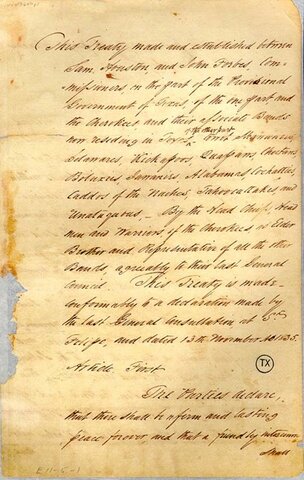 This Treaty made and established between
Sam. Houston, and John Forbes, Com-
missioners, on the part of the Provisional
Government of Texas, of the one part and
the Cherokees, and their associate Bands
now residing in Texas of the other part
Shawnees,
Delawares, Kickapoos, Quapaws, Choctaws
Boluxies, Iawanies Alabamas, Cochatties
Caddos of the Naches, Tahoocuttakes, and
Unataquous, – By the Head Chiefs, Head
men and Warriors, of the Cherokees, as Elder
Brother and Representative of all the other
Bands, agreeably to their last General
Council. This Treaty is made
conformably to a declaration made by
the last General Consultation at St
Felipe, and dated 13th November 1835.
Article First
The Parties declare,
that there shall be a firm and lasting
peace forever, and that a friendly intercourse
shall
TX
E11-5-1